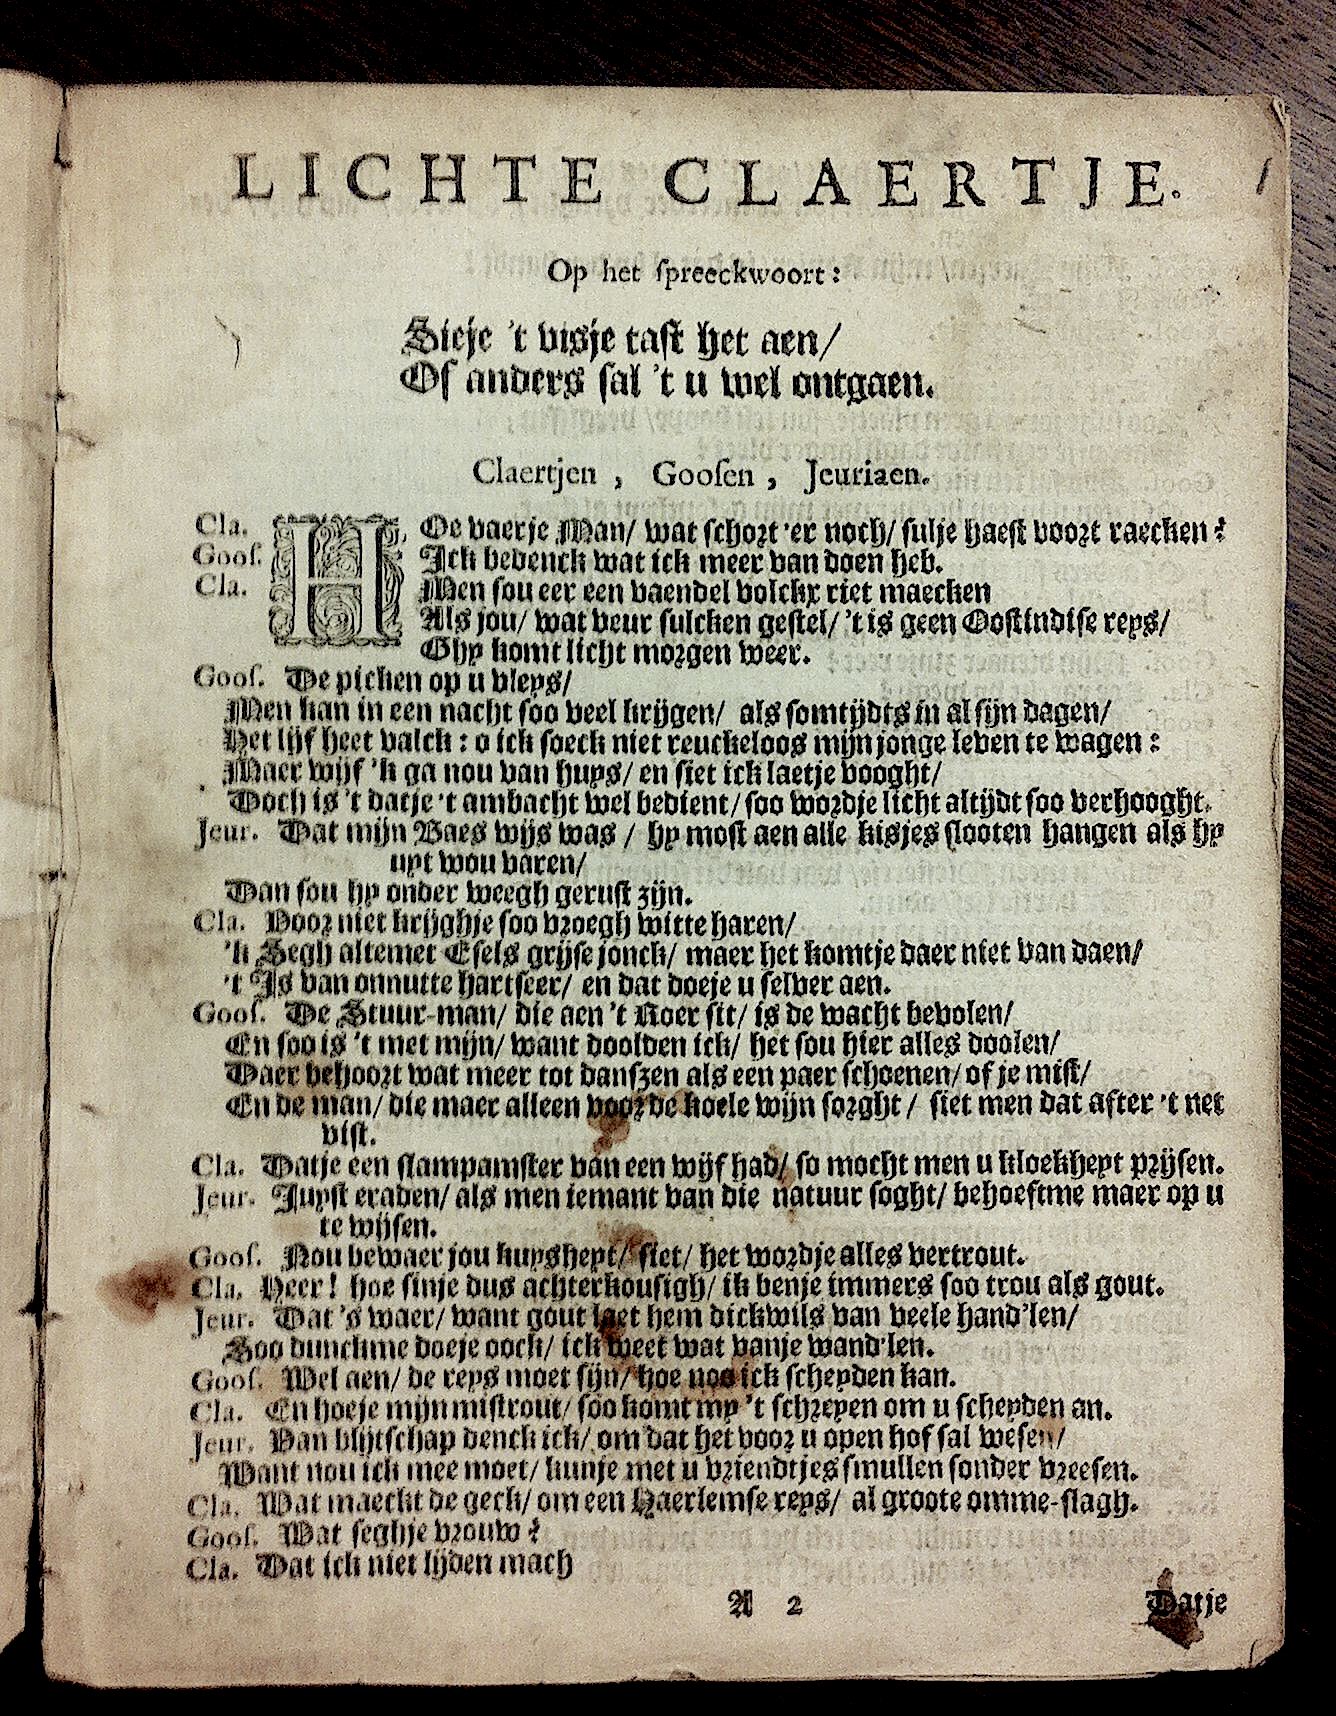 LICHTE CLAERTJE.
1
Op het ſpreeckwoort:
Sieje 't visje taſt het aen/
Of anders ſal 't u wel ontgaen.
Claertjen, Gooſen, Jeuriaen.
Cla. HOe vaerje Man/ wat ſchort 'er noch/ ſulje haeſt voort raecken?
Gooſ. Ick bedenck wat ick meer van doen heb.
Cla. Men ſou eer een vaendel volckx riet maecken
Als jou/ wat veur ſulcken geſtel/ 't is geen Ooſtindiſe reys/
Ghy komt licht morgen weer.
Gooſ. De picken op u vleys/
Men kan in een nacht ſoo veel krijgen/ als ſomtijdts in al ſijn dagen/
Het lijf heet valck: o ick ſoeck niet reuckeloos mijn jonge leven te wagen:
Maer wijf 'k ga nou van huys/ en ſiet ick laetje vooght/
Doch is 't datje 't ambacht wel bedient/ ſoo wordje licht altijdt ſoo verhooght.
Jeur. Dat mijn Baes wijs was/ hy moſt aen alle kisjes ſlooten hangen als hy
uyt wou varen/
Dan ſou hy onder weegh geruſt zijn.
Cla. Voor niet krijghje ſoo vroegh witte haren/
'k Segh altemet Eſels grijſe jonck/ maer het komtje daer niet van daen/
't Is van onnutte hartſeer/ en dat doeje u ſelver aen.
Gooſ. De Stuur-man/ die aen 't Roer ſit/ is de wacht bevolen/
En ſoo is 't met mijn/ want doolden ick/ het ſou hier alles doolen/
Daer behoort wat meer tot danſzen als een paer ſchoenen/ of je miſt/
En de man/ die maer alleen voor de koele wijn ſorght/ ſiet men dat after 't net
viſt.
Cla. Datje een ſlampamſter van een wijf had/ ſo mocht men u kloekheyt prijſen.
Jeur. Juyſt eraden/ als men iemant van die natuur ſoght/ behoeftme maer op u
te wijſen.
Gooſ. Nou bewaer jou kuysheyt/ ſiet/ het wordje alles vertrout.
Cla. Heer! hoe ſinje dus achterkouſigh/ ik benje immers ſoo trou als gout.
Jeur. Dat 's waer/ want gout laet hem dickwils van veele hand'len/
Soo dunckme doeje oock/ ick weet wat vanje wand'len.
Gooſ. Wel aen/ de reys moet ſijn/ hoe noo ick ſcheyden kan.
Cla. En hoeje mijn miſtrout/ ſoo komt my 't ſchreyen om u ſcheyden an.
Jeur. Van blijtſchap denck ick/ om dat het voor u open hof ſal weſen/
Want nou ick mee moet/ kunje met u vriendtjes ſmullen ſonder vreeſen.
Cla. Wat maeckt de geck/ om een Haerlemſe reys/ al groote omme-ſlagh.
Gooſ. Wat ſeghje vrouw?
Cla. Dat ick niet lijden mach
A 2
Datje